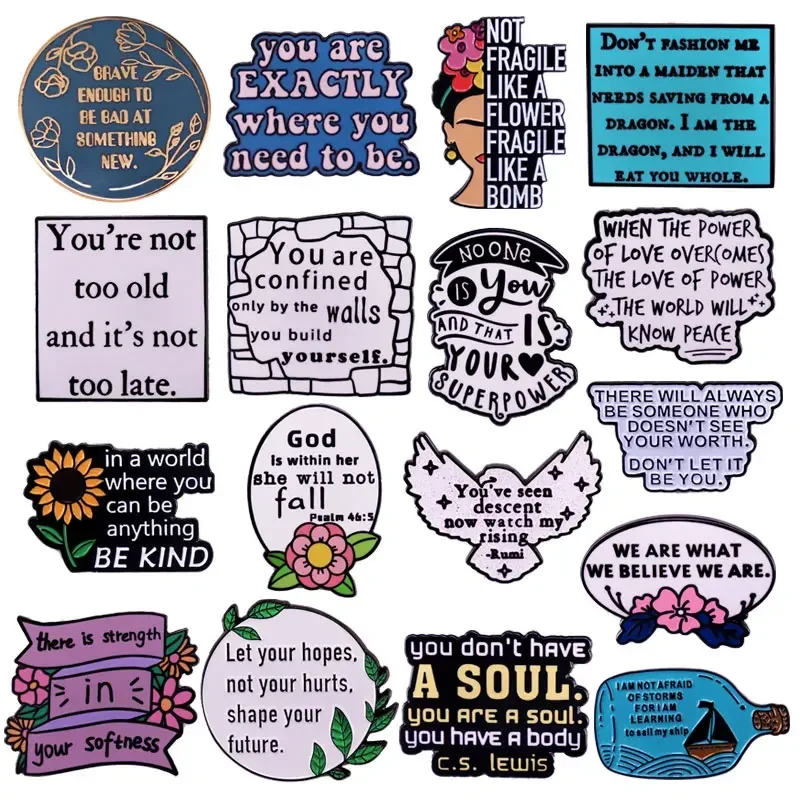 BRAVE
ENOUGH TO
BE BAD AT
SOMETHING
NEW.
you are
EXACTLY
where you
need to be.
NOT
FRAGILE
LIKE A
FLOWER
FRAGILE
LIKE A
BOMB
DON'T FASHION ME
INTO A MAIDEN THAT
NEEDS SAVING FROM A
DRAGON. I AM THE
DRAGON, AND I WILL
EAT YOU WHOLE.
You're not
too old
and it's not
too late.
You are
confined
only by the walls
you build
yourself.
NO ONE
IS You
AND THAT IS
YOUR
SUPERPOWER
WHEN THE POWER
OF LOVE OVERCOMES
THE LOVE OF POWER
THE WORLD WILL
KNOW PEACE
THERE WILL ALWAYS
BE SOMEONE WHO
DOESN'T SEE
YOUR WORTH.
DON'T LET IT
BE YOU.
in a world
where you
can be
anything
BE KIND
God
Is within her
she will not
fall
Psalm 46:5
You've seen
descent
now watch my
rising
-Rumi
WE ARE WHAT
WE BELIEVE WE ARE.
there is strength
in
your softness
Let your hopes,
not your hurts,
shape your
future.
you don't have
A SOUL.
you are a soul.
you have a body
c.s. lewis
I AM NOT AFRAID
OF STORMS
FOR I AM
LEARNING
to sail my ship